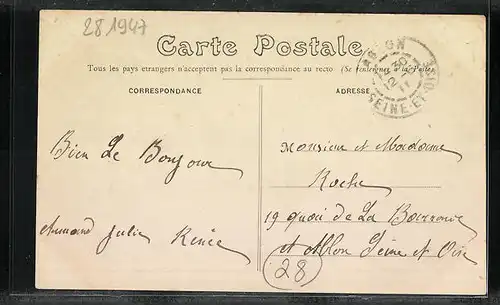 28 1947
Carte Postale
Tous les pays étrangers n'acceptent pas la correspondance au recto (Se renseigner à la Poste)
CORRESPONDANCE
ADRESSE
ABLON
SEINE-ET-OISE
12 30
11
Monsieur et Madame
Roche
19 quai de La Baronnie
et Ablon Seine et Oise
28
Bien Le Bonjour
Armand Julie Renée